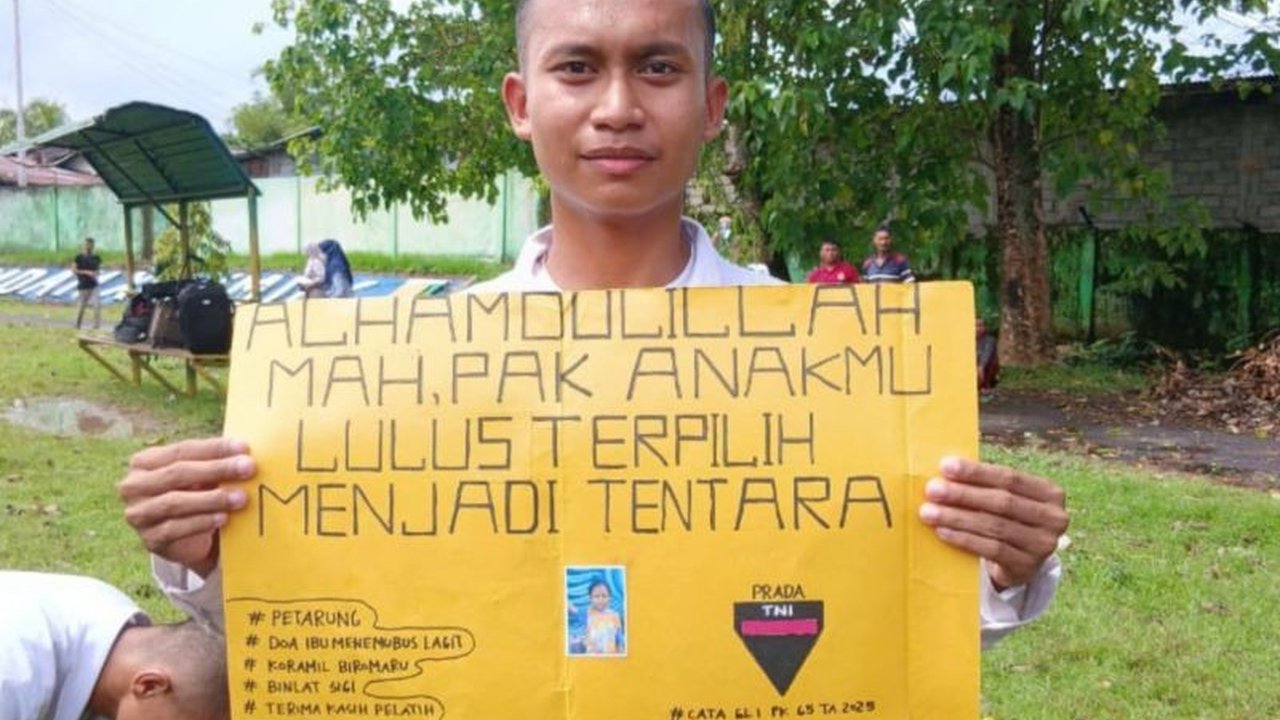 ALHAMDULILLAH
MAH, PAK ANAKMU
LULUS TERPILIH
MENJADI TENTARA
# PETARUNG
# DOA IBU MENEMUBUS LAGIT
# KORAMIL BIROMARU
# BINLAT SIGI
# TERIMA KASIH PELATIH
PRADA
TNI
#CATA GL I PK 65 TA 2025